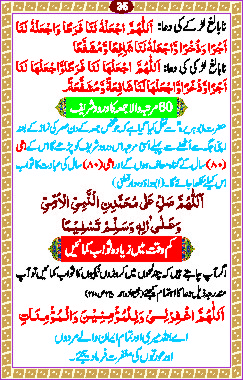 35
نابالغ لڑکے کی دعا: اَللّٰهُمَّ اجْعَلْهُ لَنَا فَرَطًا وَّاجْعَلْهُ لَنَا
اَجْرًا وَّذُخْرًا وَّاجْعَلْهُ لَنَا شَافِعًا وَّمُشَفَّعًا
نابالغ لڑکی کی دعا: اَللّٰهُمَّ اجْعَلْهَا لَنَا فَرَطًا وَّاجْعَلْهَا لَنَا
اَجْرًا وَّذُخْرًا وَّاجْعَلْهَا لَنَا شَافِعَةً وَّمُشَفَّعَةً
80 مرتبہ والا جمعہ کا درود شریف
جمعہ کے دن عصر کی نماز کے بعد
اپنی جگہ سے اٹھنے سے پہلے اسی مرتبہ یہ درود شریف پڑھے گا اس کے اسی
(۸۰) سال کے گناہ معاف ہوں گے اور اسی (۸۰) سال کی عبادت کا ثواب
اس کیلئے لکھا جائے گا۔
اَللّٰهُمَّ صَلِّ عَلٰى مُحَمَّدِنِ النَّبِيِّ الْاُمِّيِّ
وَعَلٰى اٰلِهٖ وَسَلِّمْ تَسْلِيْمًا
کم وقت میں زیادہ ثواب کمائیں
اگر آپ چاہتے ہیں کہ چند لمحوں میں کروڑوں نیکیوں کا ثواب کمائیں تو آپ
مندرجہ ذیل دعا کا اہتمام کیجئے
اَللّٰهُمَّ اغْفِرْ لِيْ وَلِلْمُؤْمِنِيْنَ وَالْمُؤْمِنَاتِ
اے اللہ میری اور تمام ایمان والے مردوں
اور عورتوں کی مغفرت فرما دیجئے۔